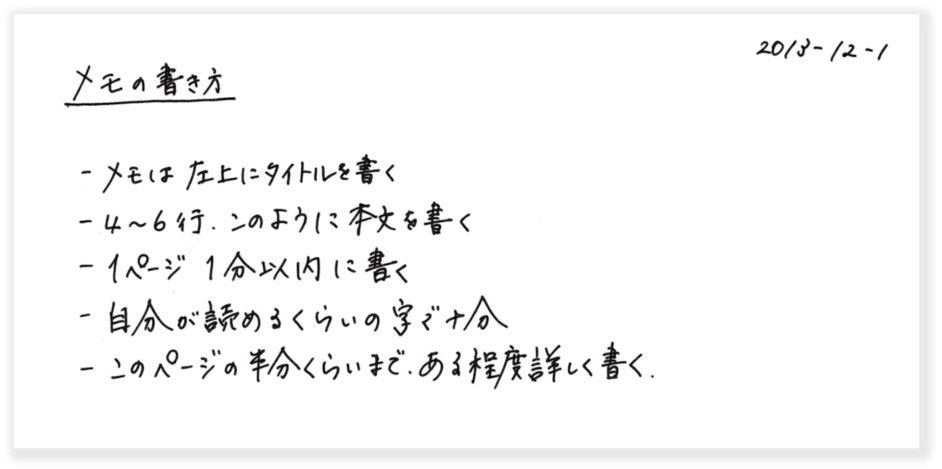 2013-12-1
メモの書き方
- メモは左上にタイトルを書く
- 4〜6行、このように本文を書く
- 1ページ 1分以内に書く
- 自分が読めるくらいの字で十分
- このページの半分くらいまで、ある程度詳しく書く.